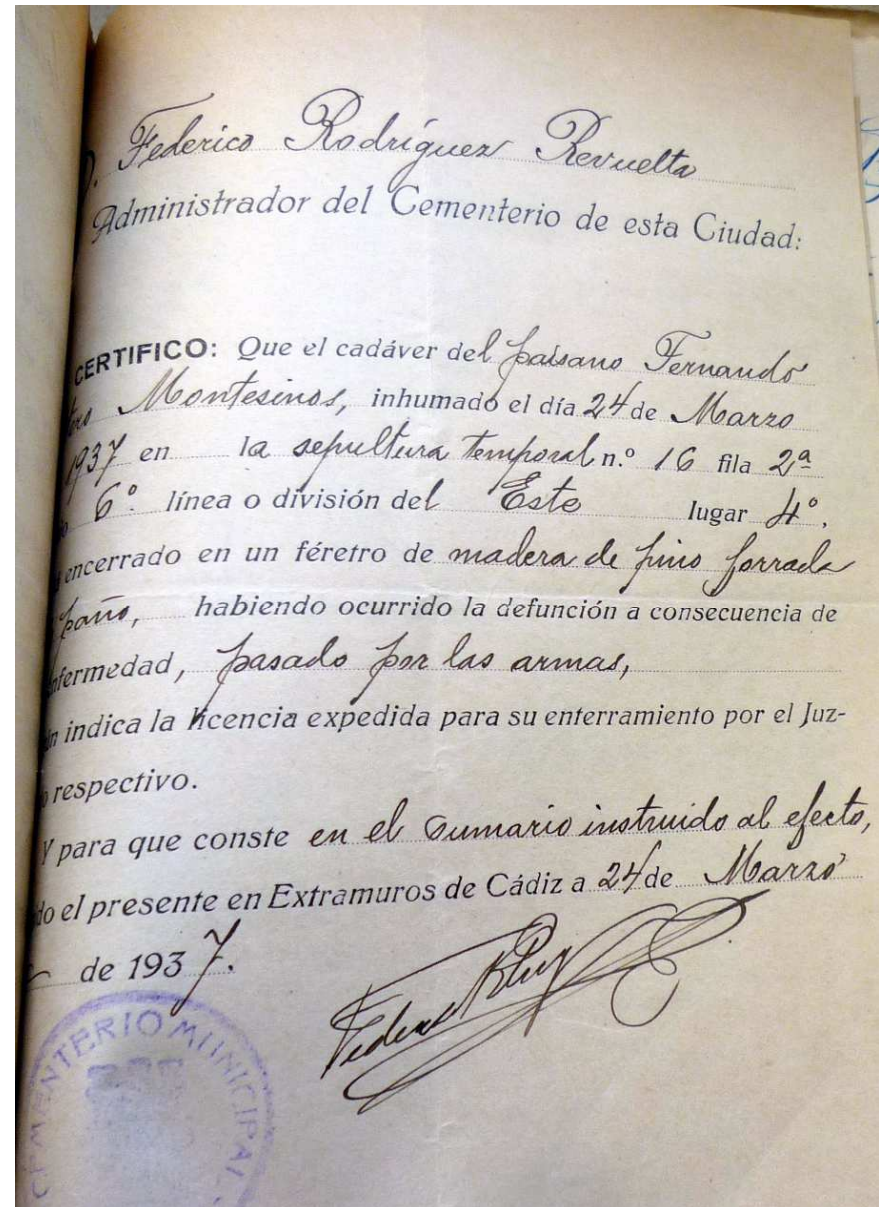 D. Federico Rodríguez Revuelta
Administrador del Cementerio de esta Ciudad:
CERTIFICO: Que el cadáver del paisano Fernando
Montesinos, inhumado el día 24 de Marzo
1937 en la sepultura temporal n.º 16 fila 2ª
6º línea o división del Este lugar 4º,
encerrado en un féretro de madera de pino forrada
paño, habiendo ocurrido la defunción a consecuencia de
nfermedad, pasado por las armas,
indica la licencia expedida para su enterramiento por el Juz-
respectivo.
Y para que conste en el Sumario instruido al efecto,
do el presente en Extramuros de Cádiz a 24 de Marzo
de 1937.
CEMENTERIO MUNICIPAL